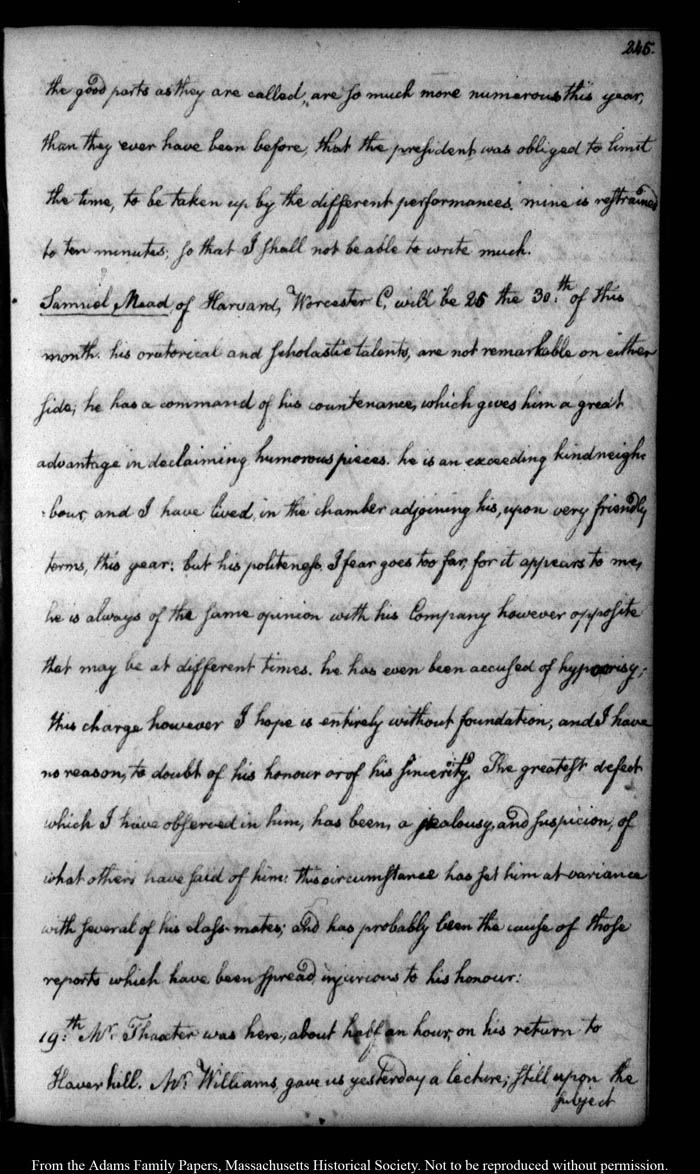 245.
the good parts as they are called, are so much more numerous this year,
than they ever have been before, that the president was obliged to limit
the time, to be taken up by the different performances. mine is restrained
to ten minutes; so that I shall not be able to write much.
Samuel Mead, of Harvard, Worcester C, will be 25 the 30.th of this
month. his oratorical and scholastic talents, are not remarkable on either
side; he has a command of his countenance, which gives him a great
advantage in declaiming humorous pieces. he is an exceeding kind neigh-
-bour, and I have lived, in the chamber adjoining his, upon very friendly
terms, this year: but his politeness, I fear goes too far, for it appears to me,
he is always of the same opinion with his Company however opposite
that may be at different times. he has even been accused of hypocrisy;
this charge however I hope is entirely without foundation, and I have
no reason, to doubt of his honour or of his sincerity. The greatest defect
which I have observed in him, has been, a jealousy, and suspicion, of
what others have said of him: this circumstance has set him at variance
with several of his class-mates; and has probably been the cause of those
reports which have been spread, injurious to his honour:
19.th Mr. Thaxter was here, about half an hour, on his return to
Haverhill. Mr. Williams, gave us yesterday a lecture; still upon the
subject
From the Adams Family Papers, Massachusetts Historical Society. Not to be reproduced without permission.